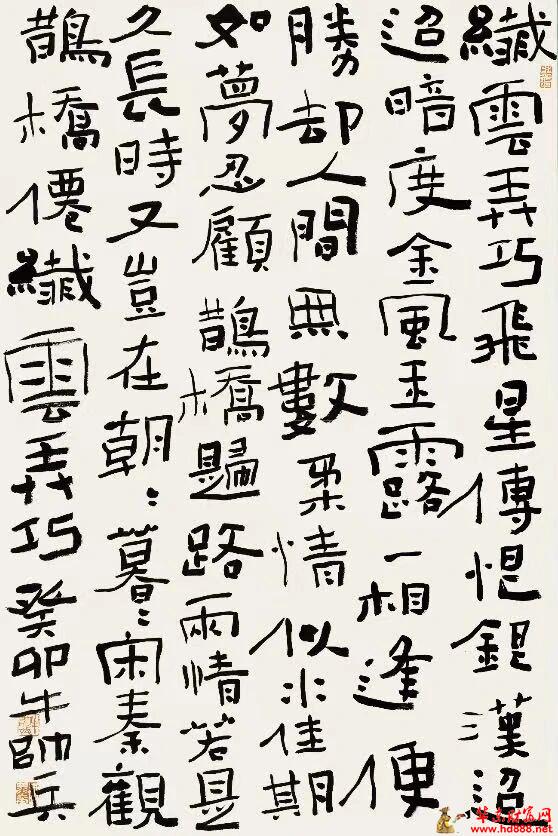 纖雲弄巧飛星傳恨銀漢迢
迢暗度金風玉露一相逢便
勝卻人間無數柔情似水佳期
如夢忍顧鵲橋歸路兩情若是
久長時又豈在朝〻暮〻宋秦觀
鵲橋僊纖雲弄巧癸卯牛帥兵
华夏财富网
www.hd888.net